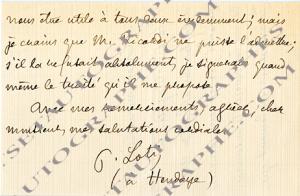 nous être utile à tous deux évidemment ; mais
je crains que M. Ricaldi ne puisse l'admettre ;
s'il la refusait absolument, je signerais quand
même le traité qu'il me propose
Avec mes remerciements, agréez, cher
monsieur, mes salutations cordiales
P. Loti
(à Hendaye)